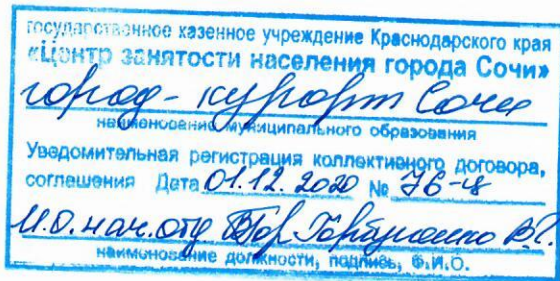 государственное казенное учреждение Краснодарского края
«Центр занятости населения города Сочи»
город-курорт Сочи
наименование муниципального образования
Уведомительная регистрация коллективного договора,
соглашения Дата 01.12.2020 № 76-
И.О. нач. отд. Горбуненко В.
наименование должности, подпись, Ф.И.О.